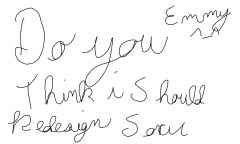 Do you Emmy ^_^
Think i Should
Redesign